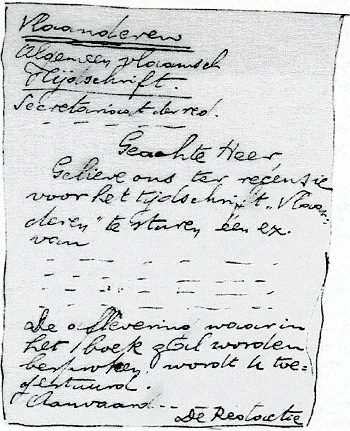 Vlaanderen
Algemeen Vlaamsch
Tijdschrift.
Secretariaat der red.
Geachte Heer
Gelieve ons ter recensie
voor het tijdschrift „Vlaan-
deren" te sturen één ex.
van
De aflevering waarin
het boek zal worden
besproken wordt U toe-
gestuurd.
Aanvaard...
De Redactie